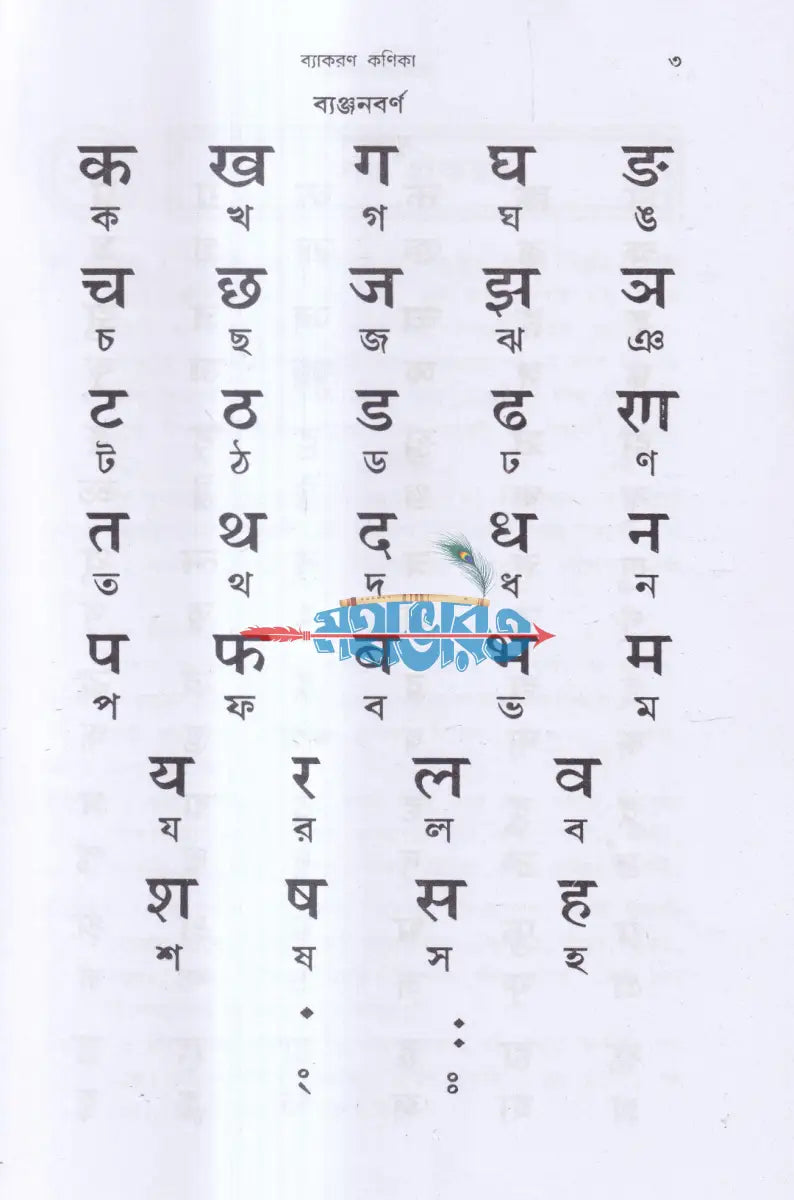 ব্যাকরণ কণিকা ৩
ব্যঞ্জনবর্ণ
क ख ग घ ङ
ক খ গ ঘ ঙ
च छ ज झ ञ
চ ছ জ ঝ ঞ
ट ठ ड ढ ण
ট ঠ ড ঢ ণ
त थ द ध न
ত থ দ ধ ন
মহাভারত
प फ ब भ म
প ফ ব ভ ম
य र ल व
য র ল ব
श ष स ह
শ ষ স হ
ं ः
ং ঃ